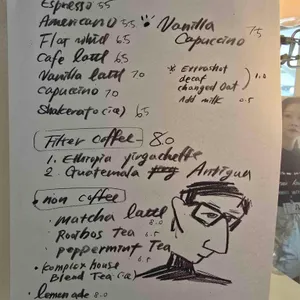 Espresso 55
Americano 55
Vanilla
Capuccino 75
Flat whid 65
Cafe latte 65
Vanilla latte 70
Capuccino 70
Shakerato (ia) 65
* Extrashot
decaf
changed Oat
) 1.0
Add milk 0.5
Filter coffee - 8.0
1. Ethiopia yirgacheffe
2. Guatemala Antigua
non coffee
· matcha latte 8.0
· Rooibos Tea 6.5
· peppermint Tea 6.5
· Komplex house
Blend Tea (ia)
· lemonade 8.0